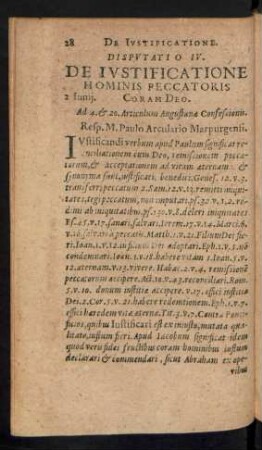 28 DE IVSTIFICATIONE.
DISPVTATIO IV.
DE IVSTIFICATIONE
HOMINIS PECCATORIS
2 Iunij. CORAM DEO.
Ad 4. & 20. Articulum Augustanæ Confessionis.
Resp. M. Paulo Arculario Marpurgensi.
IVstificandi verbum apud Paulum significat re-
conciliationem cum Deo, remissionem pecca-
torum, & acceptationem ad vitam æternam: &
synonyma sunt, iustificari, benedici: Genes. 12. v. 3.
transferri peccatum 2. Sam. 12. v. 13. remitti iniqui-
tates, tegi peccatum, non imputari. ps. 32. v. 1. 2. re-
dimi ab iniquitatibus. ps. 130. v. 8. deleri iniquitates
v. 16. salvari a peccatis. Matth. 1. v. 21. Filium Dei fie-
ri. Ioan. 1. v. 12. in filios Dei adoptari. Eph. 1. v. 5. nõ
condemnari. Ioan. 3. v. 18. habere vitam 1. Ioan. 5.
v. 12. æternam. v. 13. vivere. Habac. 2. v. 4. remissionẽ
peccatorum accipere. Act. 10. v. 43. reconciliari. Rom.
5. v. 10. donum iustitiæ accipere. v. 17. effici iustitiã
Dei. 2. Cor. 5. v. 21. habere redemtionem. Eph. 1. v. 7.
effici hæredem vitæ æternæ. Tit. 3. v. 7. Contra Ponti-
ficios, quibus Iustificari est ex iniusto, mutata qua-
litate, iustum fieri. Apud Iacobum significat idem
quod verè fidei fructibus coram hominibus iustum
declarari & commendari, sicut Abraham ex ope-
ribus